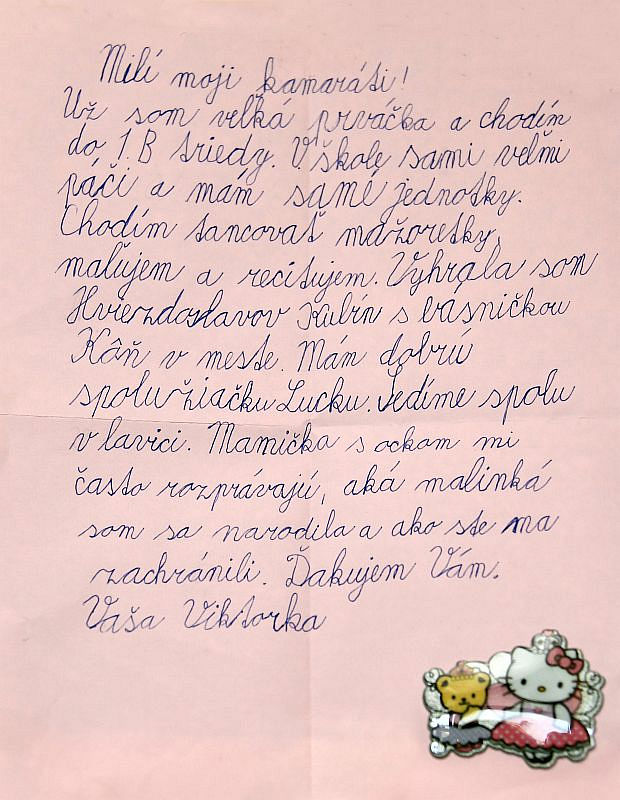 Milí moji kamaráti!
Už som velká prváčka a chodím
do 1.B triedy. V škole sami velmi
páči a mám samé jednotky.
Chodím tancovať mažoretky,
malujem a recitujem. Vyhrala som
Hviezdoslavov Kubín s básničkou
Kôň v meste. Mám dobrú
spolužiačku Lucku. Sedíme spolu
v lavici. Mamička s ockom mi
často rozprávajú, aká malinká
som sa narodila a ako ste ma
zachránili. Ďakujem Vám.
Vaša Viktorka